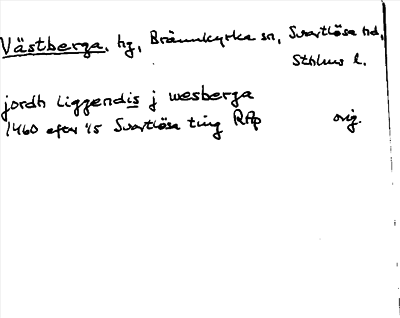 Västberga, hg, Brännkyrka sn, Svartlösa hd,
Sthlms l.
jordh liggendis j wesberga
1460 efter 15 Svartlösa ting RAp orig.